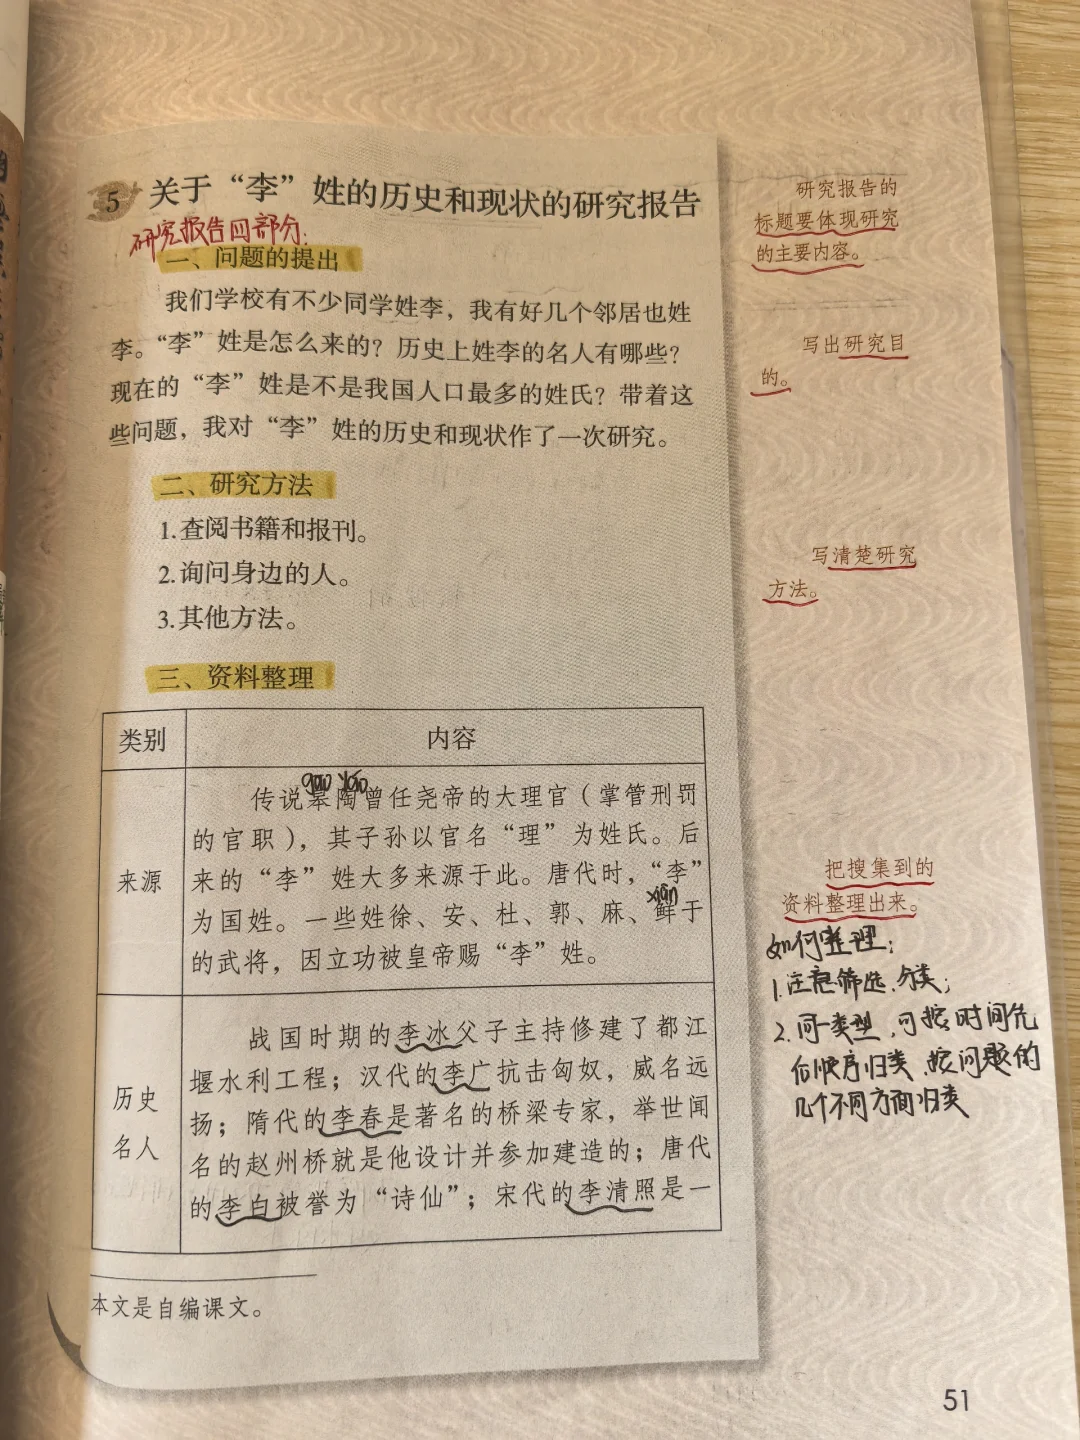 5 关于“李”姓的历史和现状的研究报告
研究报告四部分:
一、问题的提出
我们学校有不少同学姓李，我有好几个邻居也姓
李。“李”姓是怎么来的？历史上姓李的名人有哪些？
现在的“李”姓是不是我国人口最多的姓氏？带着这
些问题，我对“李”姓的历史和现状作了一次研究。
二、研究方法
1.查阅书籍和报刊。
2.询问身边的人。
3.其他方法。
三、资料整理
类别
内容
来源
gāo yáo
传说皋陶曾任尧帝的大理官（掌管刑罚
的官职），其子孙以官名“理”为姓氏。后
来的“李”姓大多来源于此。唐代时，“李”
xiān
为国姓。一些姓徐、安、杜、郭、麻、鲜于
的武将，因立功被皇帝赐“李”姓。
历史
名人
战国时期的李冰父子主持修建了都江
堰水利工程；汉代的李广抗击匈奴，威名远
扬；隋代的李春是著名的桥梁专家，举世闻
名的赵州桥就是他设计并参加建造的；唐代
的李白被誉为“诗仙”；宋代的李清照是一
本文是自编课文。
研究报告的
标题要体现研究
的主要内容。
写出研究目
的。
写清楚研究
方法。
把搜集到的
资料整理出来。
如何整理:
1.注意筛选、分类;
2.同一类型，可按时间先
后顺序归类、按问题的
几个不同方面归类
51